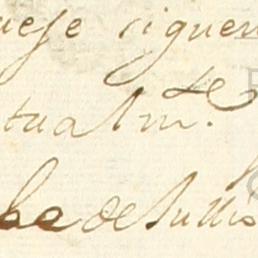 uese siguen
tualm.te
be de Julio